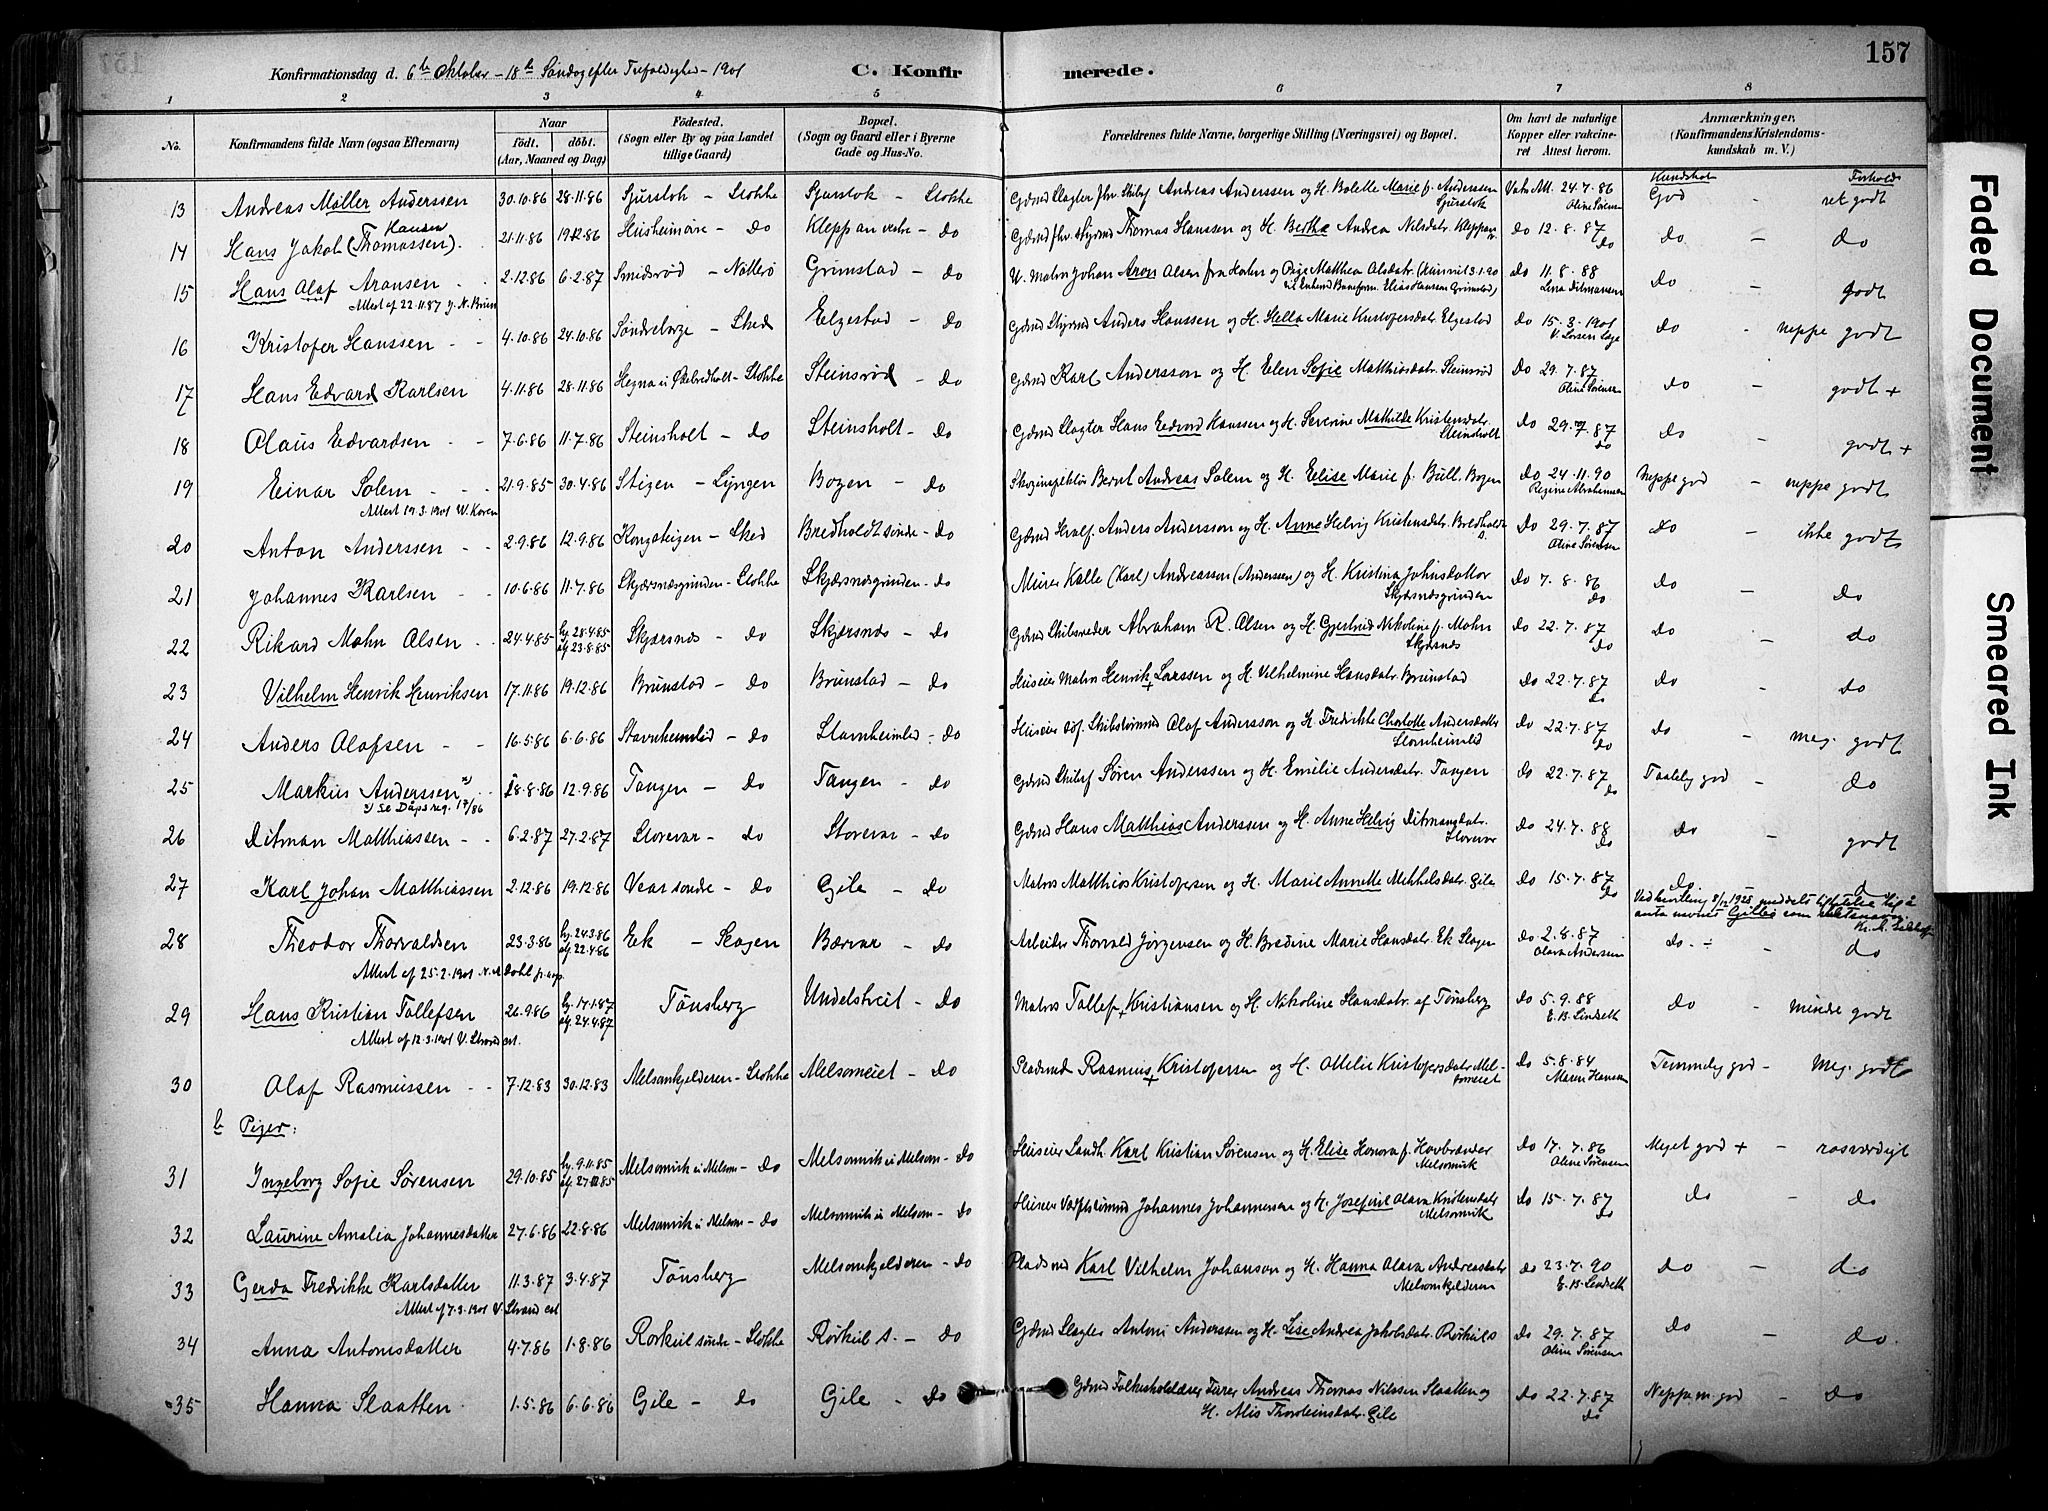 157
Konfirmationsdag d. 6te Oktober - 18de Søndag efter Trefoldighed - 1901
C. Konfirmerede.
1 2 3 4 5 6 7 8
No.
Konfirmandens fulde Navn (ogsaa Efternavn)
Naar
født. døbt.
(Aar, Maaned og Dag)
Fødested.
(Sogn eller By og paa Landet
tillige Gaard)
Bopæl.
(Sogn og Gaard eller i Byerne
Gade og Hus-No.
Forældrenes fulde Navne, borgerlige Stilling (Næringsvei) og Bopæl.
Om havt de naturlige
Kopper eller vakcine-
ret Attest herom.
Anmærkninger.
(Konfirmandens Kristendoms-
kundskab m. V.)
Kundskab Forhold
13 Andreas Møller Anderssen 30.10.86 28.11.86 Sjurstok - Stokke Sjurstok - Stokke Andreas Anderssen og H. Bolette Marie f. Anderssen Sjurstok 24.7.86 Oline Sørensen God - ret godt
14 Hans Jakob (Thomassen) Hansen 21.11.86 19.12.86 Husheimøre - do Kleppan vestre - do Thomas Hanssen og H. Berthe Andrea Nilsdatr. Kleppan do 12.8.87 do do - do
15 Hans Olaf Aronsen 2.12.86 6.2.87 Smidsrød - Nøtterø Grimstad - do Johan Aron Olsen og Pige Matthea Olsdatr. do 11.8.88 Lena Ditmansen do - godt
Attest af 22.11.87
16 Kristofer Hanssen 4.10.86 24.10.86 Søndreberge - Sked Elgestad - do Gdmd Styrmd Anders Hanssen og H. Hella Marie Kristofersdatr. Elgestad do 15.3.1901 do - neppe godt
17 Hans Edvard Karlsen 4.11.86 28.11.86 Hegna - Stokke Steinsrød - do Gdmd Karl Andersson og H. Elen Sofie Matthiasdatr. Steinsrød do 29.7.87 Oline Sørensen do godt +
18 Olaus Edvardsen 7.6.86 11.7.86 Steinsholt - do Steinsholt - do Gdmd Slagter Hans Edvard Hanssen og H. Severine Mathilde Kristensdatr. Steinsholt do 29.7.87 do do - godt +
19 Einar Solem 21.9.85 30.4.86 Stigen - Lyngen Bogen - do Skoginspektør Bernt Andreas Solem og H. Elise Marie f. Bull. Bogen do 24.11.90 Regine Abrahamsen Neppe god - neppe godt
Attest 19.3.1901 W. Koren
20 Anton Anderssen 2.9.86 12.9.86 Kongsteigen - Sked Bredholdt søndre - do Gdmd Hvalf. Anders Andersson og H. Anne Helvig Kristensdatr. Bredholdt s. do 29.7.87 Oline Sørensen do - ikke godt
21 Johannes Karlsen 10.6.86 11.7.86 Skjærsnæsgrinden - Stokke Skjærsnæsgrinden - do Murer Kalle (Karl) Andreassen (Anderssen) og H. Kristina Johnsdatter Skjærsnæsgrinden do 7.8.86 do do - do
22 Rikard Mohn Olsen 24.4.85 hj. 28.4.85 af. 23.8.85 Skjærsnæs - do Skjærsnæs - do Gdmd Skibsreder Abraham R. Olsen og H. Gjertrud Nikoline f. Mohn Skjærsnæs do 22.7.87 do do - do
23 Vilhelm Henrik Henriksen 17.11.86 19.12.86 Brunstad - do Brunstad - do Huseier Matros Henrik Larssen og H. Vilhelmine Hansdatr. Brunstad do 22.7.87 do do - do
24 Anders Olafsen 16.5.86 6.6.86 Stavnheimlid - do Stavnheimlid - do Huseier Skibstømmd Olaf Andersson og H. Fredrikke Charlotte Andersdatter Stavnheimlid do 22.7.87 do do - meg. godt
25 Markus Anderssen x) 18.8.86 12.9.86 Tangen - do Tangen - do Gdmd Skibsf Søren Anderssen og H. Emilie Andersdatr. Tangen do 22.7.87 do Taalelig god - do
x) Se Dåpsreg. 17/86
26 Ditman Matthiassen 6.2.87 27.2.87 Storevar - do Storevar - do Gdmd Hans Matthias Anderssen og H. Anne Helvig Ditmansdatr. Storevar do 24.7.88 do do - godt
27 Karl Johan Matthiassen 2.12.86 19.12.86 Vear søndre - do Gile - do Matros Matthias Kristofersen og H. Marie Annette Mikkelsdatr. Gile do 15.7.87 do do
Ved bevilling 1925 meddelt tillatelse til å
anta navnet Gilbo som slektsnavn.
28 Theodor Thorvaldsen 23.3.86 hj. 24.3.86 af. 22.4.86 Eek - Slagen Bærvar - do Arbeider Thorvald Jørgensen og H. Bredine Marie Hansdatr. Ek Slagen do 2.8.87 Olava Andersen do - do
Attest af 25.2.1901 Dahl
29 Hans Kristian Tollefsen 26.9.86 hj. 17.1.87 af. 24.4.87 Tønsberg Undelstveit - do Matros Tollef Kristiansen og H. Nikoline Hansdatr. af Tønsberg do 5.9.88 E.B. Lindseth do - mindre godt
Attest af 12.3.1901 V. Strand
30 Olaf Rasmussen 7.12.83 30.12.83 Melsomkjelderen - Stokke Melsomeiet - do Pladsmd Rasmus Kristofersen og H. Ottilie Kristofersdatr. Melsomeiet do 5.8.84 Maren Hansen Temmelig god - Meg. godt
b Piger:
31 Ingeborg Sofie Sørensen 29.10.85 hj. 9.11.85 af. 27.12.85 Melsomvik u. Melsom - do Melsomvik u. Melsom - do Huseier Landh. Karl Kristian Sørensen og H. Elise Honora f. Havbrænder Melsomvik do 17.7.86 Oline Sørensen Meget god + - rosværdigt
32 Laurine Amalia Johannesdatter 27.6.86 22.8.86 Melsomvik u. Melsom - do Melsomvik u. Melsom - do Huseier Johannes Johannessen og H. Josefine Olava Kristensdatr Melsomvik do 15.7.87 do do - do
33 Gerda Fredrikke Karlsdatter 11.3.87 3.4.87 Tønsberg Melsomkjelderen - do Pladsmd Karl Vilhelm Johanson og H. Hanna Olava Andreasdatr Melsomkjelderen do 23.7.90 E.B. Lindseth do - do
Attest af 7.3.1901 V. Strand
34 Anna Antonisdatter 4.7.86 1.8.86 Rørkul søndre - Stokke Rørkul s. - do Gdmd Slagter Antoni Anderssen og H. Lise Andrea Jakobsdatr. Rørkul s do 29.7.87 Oline Sørensen do - do
35 Hanna Slaatten 1.5.86 6.6.86 Gile - do Gile - do Gdmd Andreas Thomas Nilssen Slaatten og
H. Alis Thorsteinsdatr. Gile do 22.7.87 do Neppe m. god - do
Faded Document
Smeared Ink